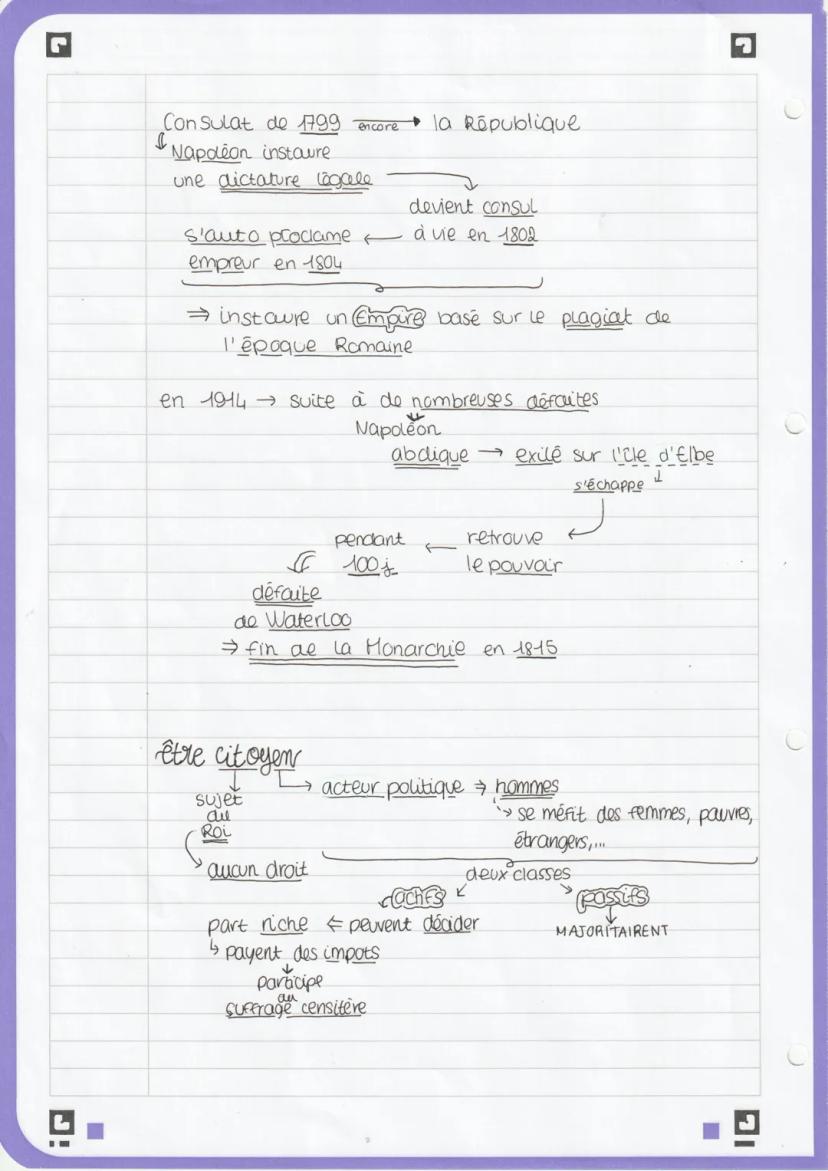 Consulat de 1799 encore → la République
⇓ Napoléon instaure
une dictature légale
devient consul
s'auto proclame ← à vie en 1802
empreur en 1804
⇒ instaure un Empire basé sur le plagiat de
l'époque Romaine
en 1914 → suite à de nombreuses défaites
Napoléon
abdique → exilé sur l'île d'Elbe
s'échappe
pendant ← retrouve
100j le pouvoir
défaite
de Waterloo
⇒ fin de la Monarchie en 1815
être citoyen
→ acteur politique ⇒ hommes
sujet
du
Roi
→ se méfit des femmes, pauvres,
étrangers,...
aucun droit
deux classes
actifs
passifs
part riche ⇐ peuvent décider
MAJORITAIRENT
↳ payent des impots
↓
participe
au
suffrage censitère